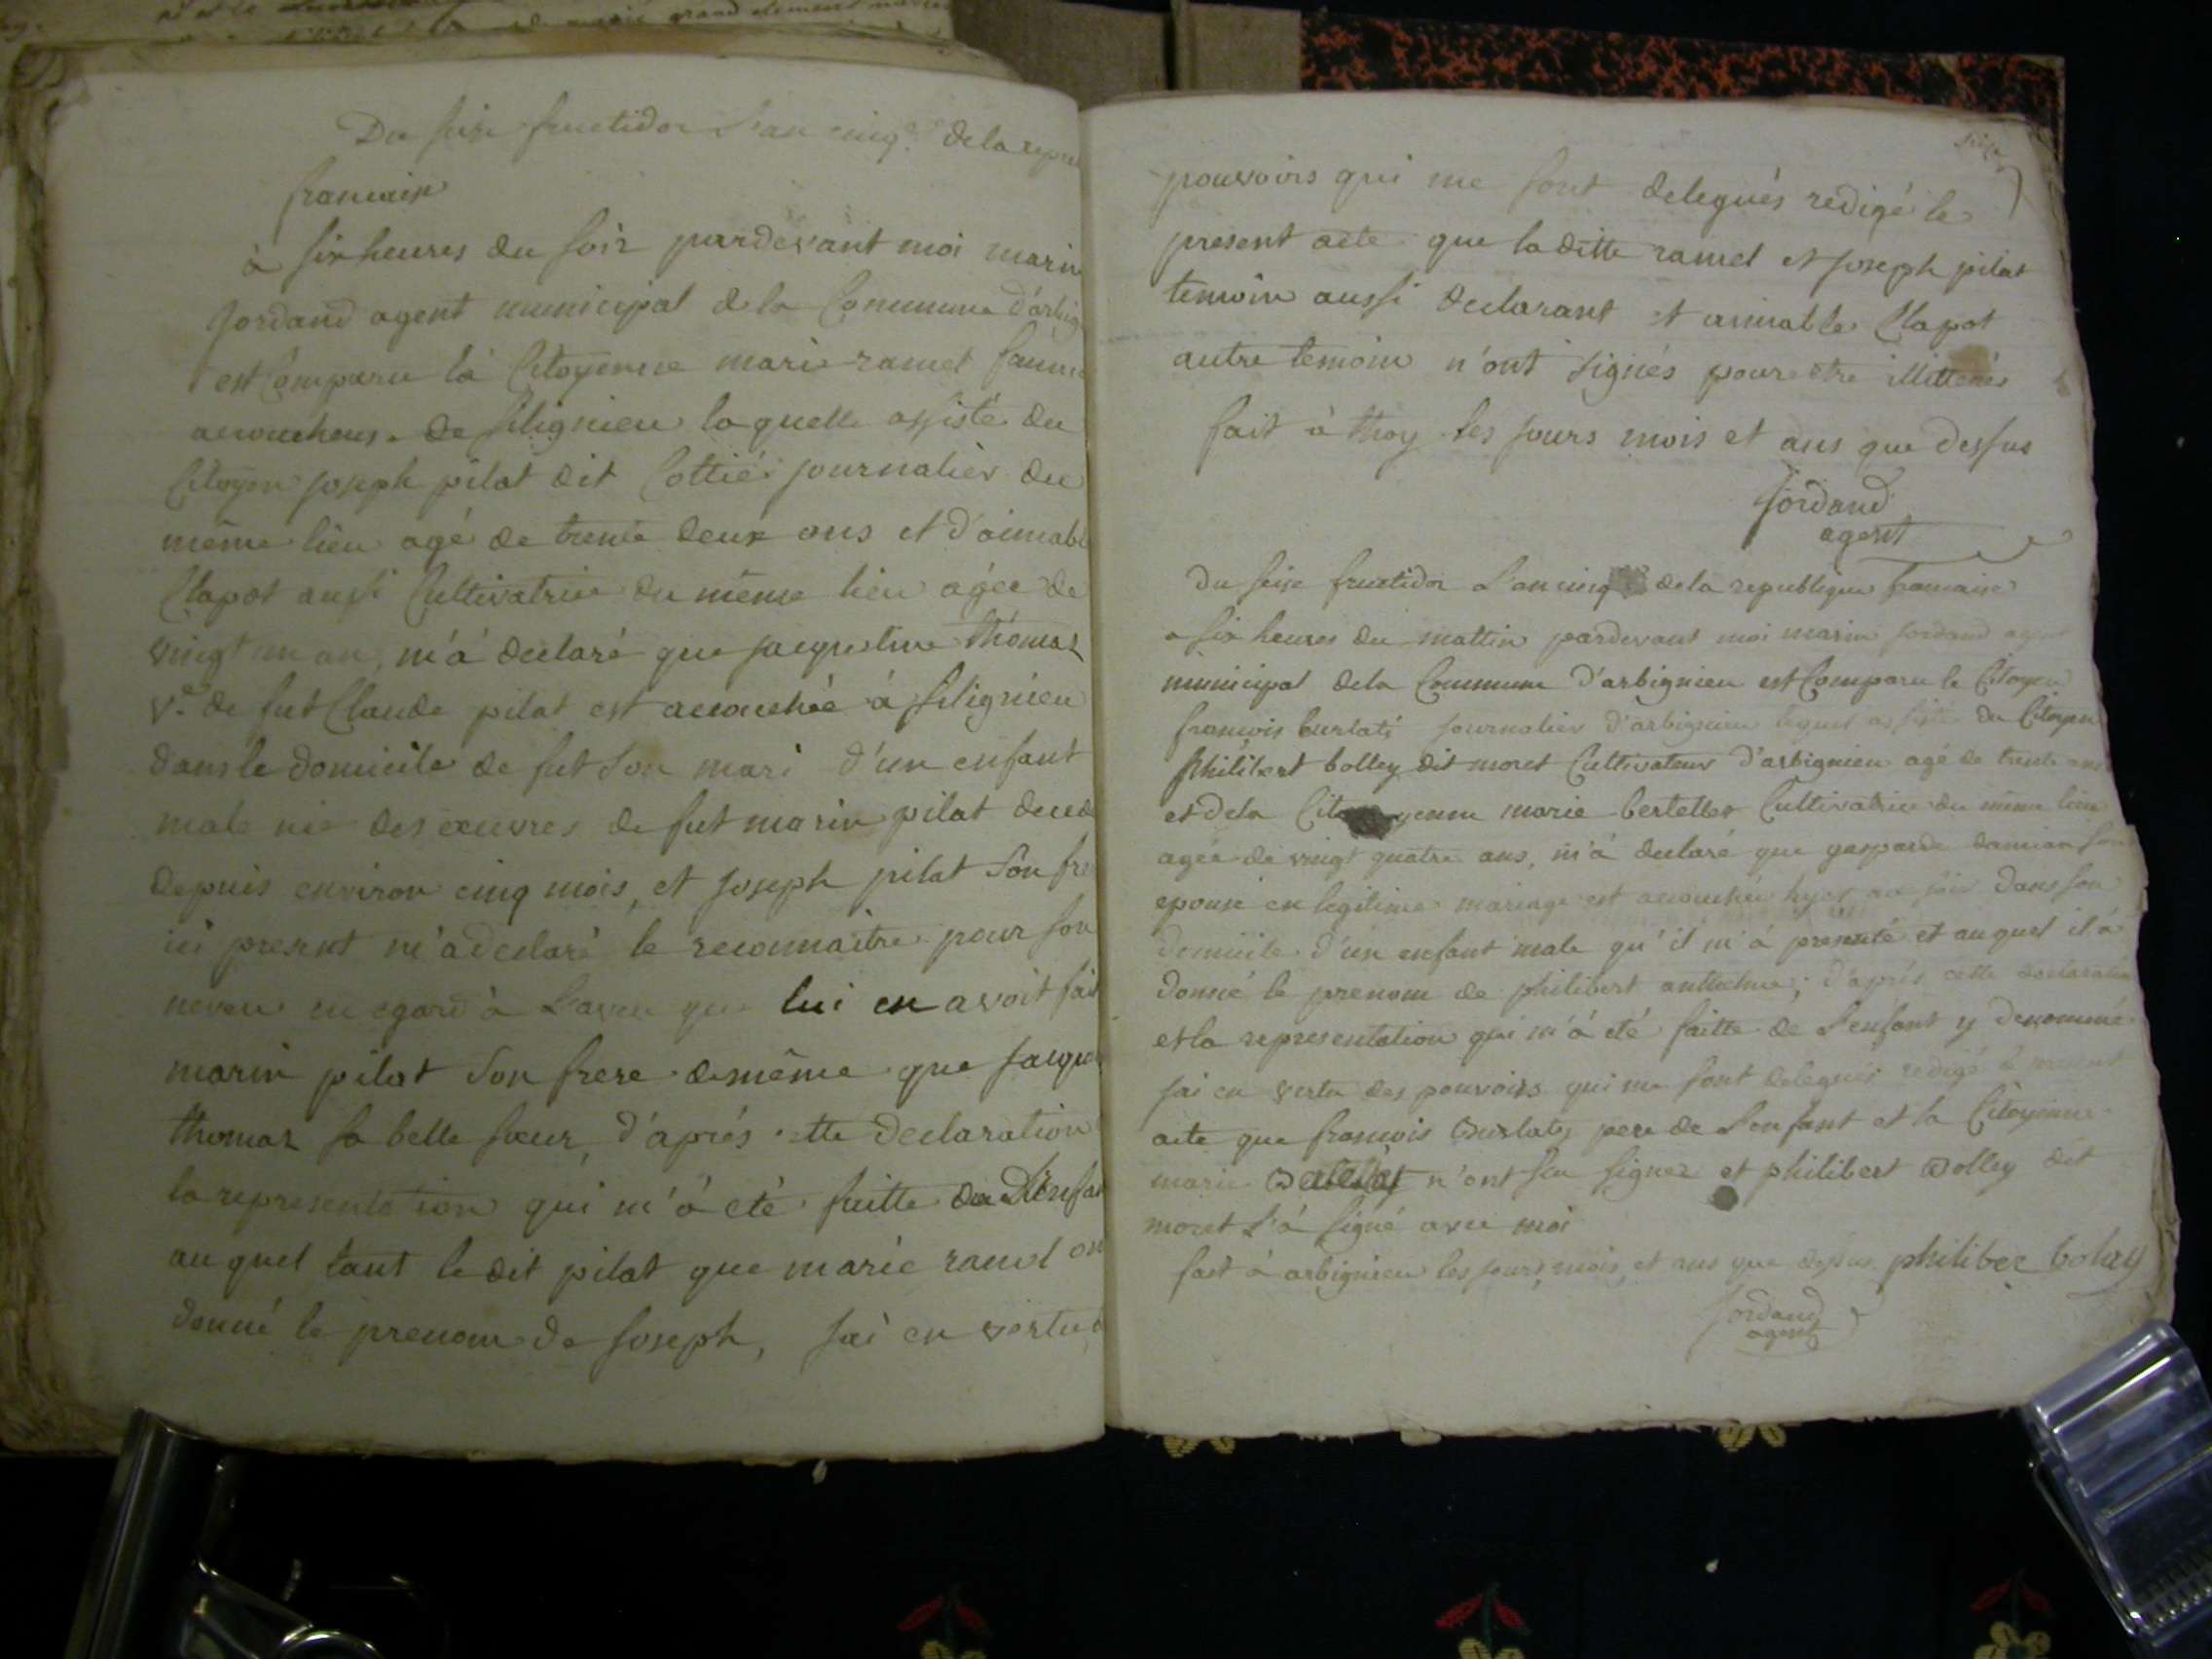 Du seize fructidor l'an cinq.e de la repu
francaise
à six heures du soir pardevant moi marin
Jordand agent municipal de la Commune d'arbig
est Comparu la Citoyenne marie ramel famme
acoucheuse de Silignieu la quelle assisté du
Citoyen joseph pilat dit Cottié journalier du
même lieu agé de trente deux ans et d'aimabl
Clapot aussi Cultivatrice du même lieu agée de
vingt un an, m'á declaré que jacqueline thomaz
v.e de fut Claude pilat est acouchée á Silignieu
dans le domicile de fut Son mari d'un enfant
male né des œuvres de fut marin pilat deced
depuis environ cinq mois, et joseph pilat Son fre
ici present m'a declaré le reconnaitre pour son
neveu eu egard à l'aveu que lui en avoit fait
marin pilat Son frere de même que jacque
thomaz sa belle sœur, d'aprés cette declaration
la representation qui m'á eté faitte du L'enfan
au quel tant le dit pilat que marie ramel on
donné le prenom de joseph, jai en vertu d
pouvoirs qui me sont delegués redigé le
present acte que la ditte ramel et joseph pilat
temoin aussi declarant et aimable Clapot
autre temoin n'ont signés pour etre illitterés
fait à thoy les jours mois et ans que dessus
Jordand
agent
du seize fructidor L'an cinq de la republique francaise
a six heures du mattin pardevant moi marin jordand agent
municipal dela Commune d'arbignieu est Comparu le Citoyen
francois burlati journalier d'arbignieu lequel assisté du Citoyen
philibert bolley dit moret Cultivateur d'arbignieu agé de trente ans
et dela Citoyenne marie bertellet Cultivatrice du même lieu
agée de vingt quatre ans, m'á declaré que gasparde damian son
epouse en legitime mariage est acouchée hyer au soir dans son
domicile d'un enfant male qu'il m'á presenté et au quel il á
donné le prenom de philibert anthelme; d'aprés cette declaration
et la representation qui m'á eté faitte de L'enfant y denommé
jai en vertu des pouvoirs qui me sont delegués redigé le present
acte que francois Burlaty pere de L'enfant et la Citoyenne
marie Bertellet n'ont seu signer et philibert Bolley dit
moret L'á signé avec moi
fait à arbignieu les jours, mois, et ans que dessus philiber bolley
Jordand
agent